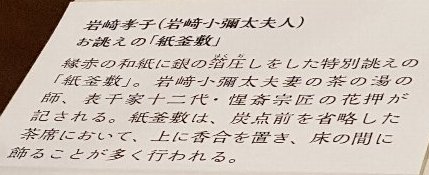 岩﨑孝子（岩﨑小彌太夫人）
お誂えの「紙釜敷」
縁赤の和紙に銀の箔圧しをした特別誂えの
「紙釜敷」。岩﨑小彌太夫妻の茶の湯の
師、表千家十二代・惺斎宗匠の花押が
記される。紙釜敷は、炭点前を省略した
茶席において、上に香合を置き、床の間に
飾ることが多く行われる。